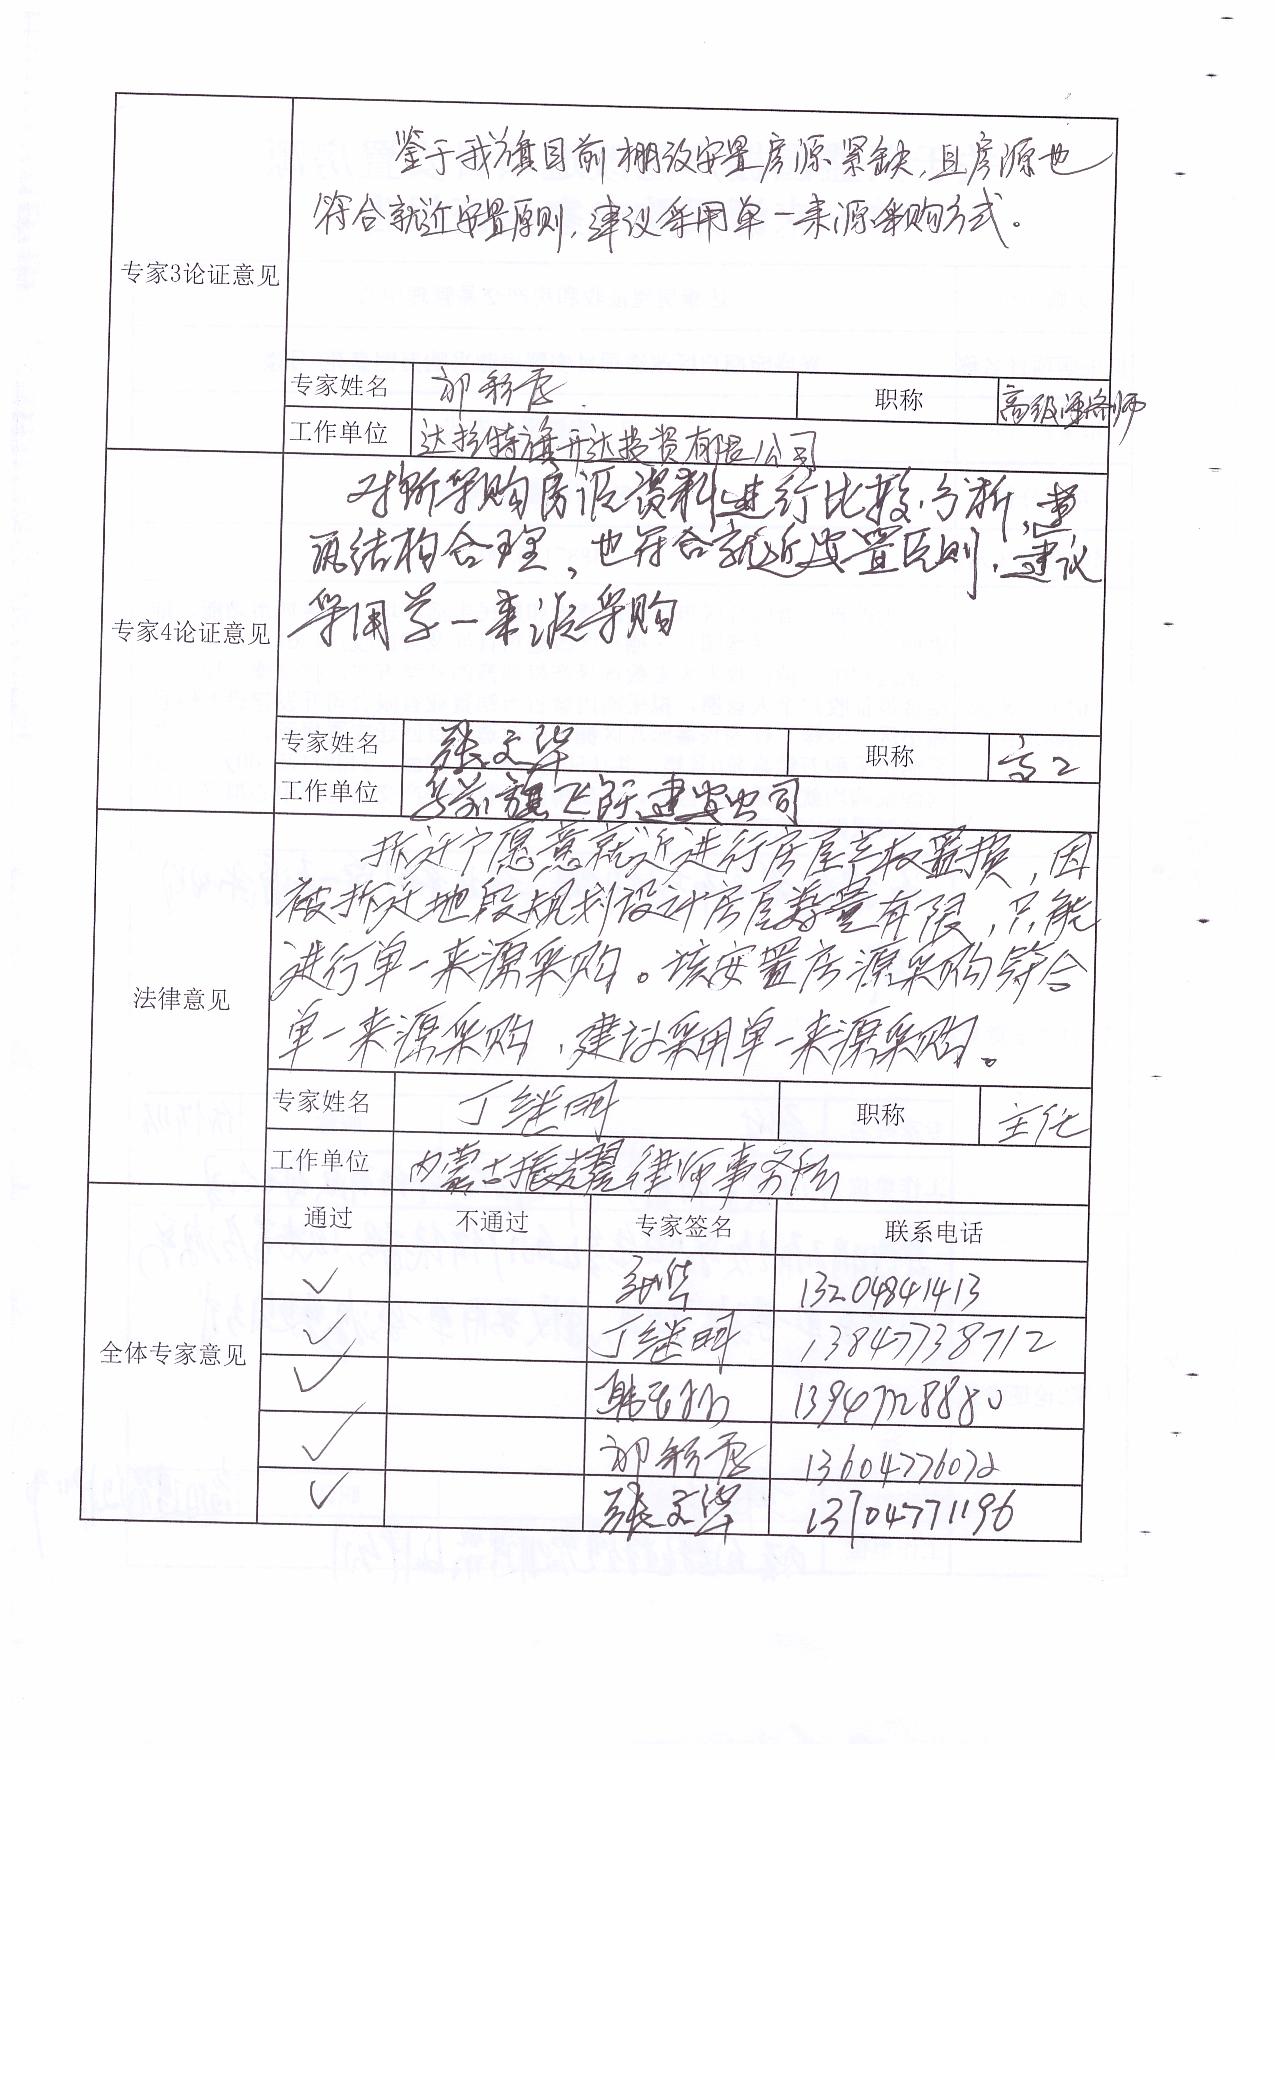 鉴于我旗目前棚改安置房源紧缺,且房源也
符合就近安置原则,建议采用单一来源采购方式。
专家3论证意见
专家姓名 职称 高级经济师
工作单位 达拉特旗开达投资有限公司
对所采购房源资料进行比较.分析,建
筑结构合理,也符合就近安置原则,建议
采用单一来源采购
专家4论证意见
专家姓名 张文华 职称 高工
工作单位 旗飞跃建安公司
拆迁户愿意就近进行房屋产权置换,因
被拆迁地段规划设计房屋数量有限,只能
进行单一来源采购。该安置房源采购符合
法律意见
单一来源采购,建议采用单一来源采购。
专家姓名 丁继明 职称 主任
工作单位 内蒙古振 律师事务所
通过 不通过 专家签名 联系电话
✓ 13204841413
✓ 丁继明 13847738712
全体专家意见
✓ 13947728880
✓ 13604776072
✓ 张文华 13704771196